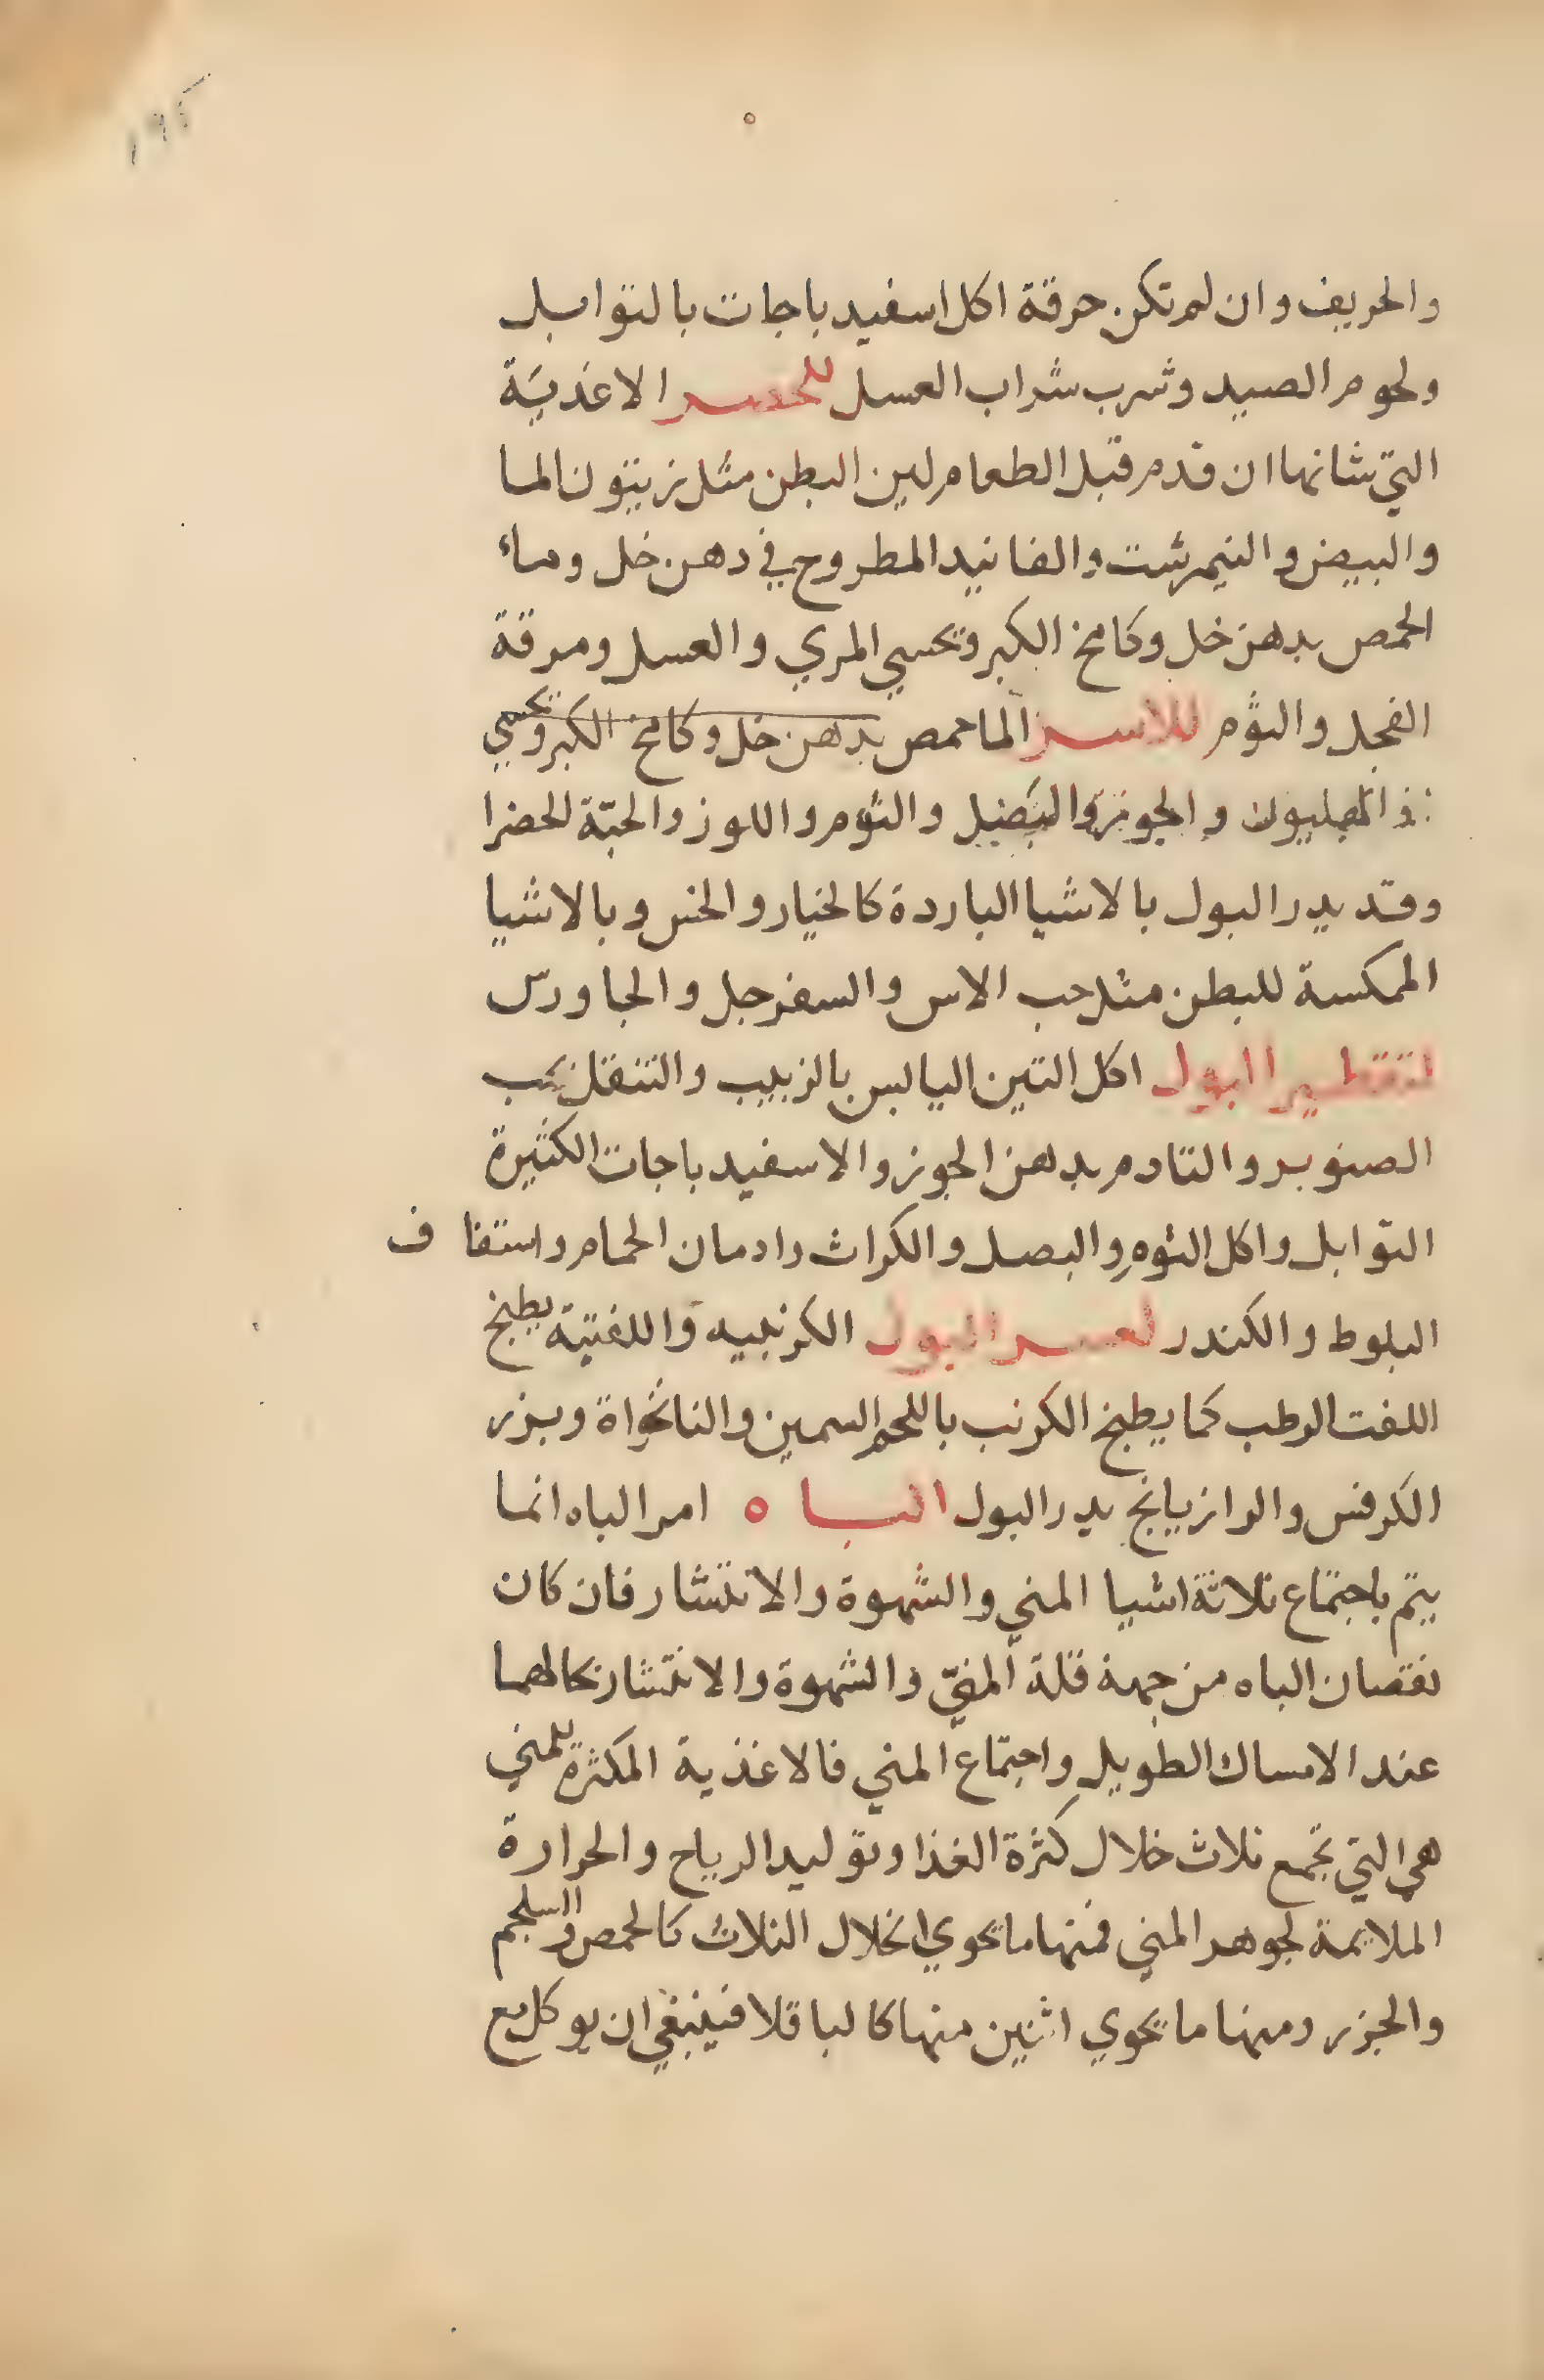 ١٩٤
والحريف وان لم تكن حرقة اكل اسفيد باجات بالتوابل
ولحوم الصيد وشرب شراب العسل للحصر الاغذية
التي شانها ان قدم قبل الطعام لين البطن مثل زيتون الما
والبيض والنيمرشت والفانيد المطروح في دهن خل وماء
الحمص بدهن خل وكامخ الكبر وتحسي المري والعسل ومرقة
الفجل والثوم للاسر الما حمص بدهن خل وكامخ الكبر وتحسي
والهليون والجوز والبصل والثوم واللوز والحبة الخضرا
وقد يدر البول بالاشيا الباردة كالخيار والخس وبالاشيا
الممكسة للبطن مثل حب الاس والسفرجل والجاورس
لتقطير البول اكل التين اليابس بالزبيب والتنقل بحب
الصنوبر والتادم بدهن الجوز والاسفيد باجات الكثيرة
التوابل واكل الثوم والبصل والكراث وادمان الحمام واستفاف
البلوط والكندر لعسر البول الكرنبيه واللفتية يطبخ
اللفت الرطب كما يطبخ الكرنب باللحم السمين والنانخواة وبزر
الكرفس والرازيانج يدر البول الباه امر الباه انما
يتم باجتماع ثلاثة اشيا المني والشهوة والانتشار فان كان
نقصان الباه من جهة قلة المني والشهوة والانتشار بحالهما
عند الامساك الطويل واجتماع المني فالاغذية المكثرة للمني
هي التي تجمع ثلاث خلال كثرة الغذا وتوليد الرياح والحرارة
الملايمة لجوهر المني فمنها ما يحوي الخلال الثلاث كالحمص والسلجم
والجزر ومنها ما يحوي اثنين منها كالباقلا فينبغي ان يوكل مع